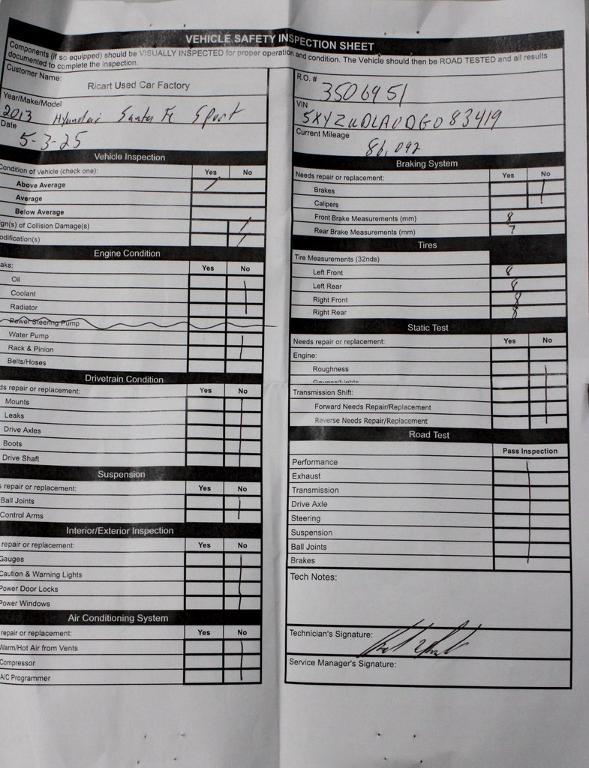 VEHICLE SAFETY INSPECTION SHEET
Components (if so equipped) should be VISUALLY INSPECTED for proper operation and condition. The Vehicle should then be ROAD TESTED and all results
documented to complete the inspection.
Customer Name:
Ricart Used Car Factory
Year/Make/Model
2013 Hyundai Santa Fe Sport
Date
5-3-25
Vehicle Inspection
Condition of Vehicle (check one): Yes No
Above Average
Average
Below Average
gn(s) of Collision Damage(s)
odification(s)
Engine Condition
aks: Yes No
Oil
Coolant
Radiator
Power Steering Pump
Water Pump
Rack & Pinion
Belts/Hoses
Drivetrain Condition
ds repair or replacement: Yes No
Mounts
Leaks
Drive Axles
Boots
Drive Shaft
Suspension
s repair or replacement: Yes No
Ball Joints
Control Arms
Interior/Exterior Inspection
repair or replacement: Yes No
Gauges
Caution & Warning Lights
Power Door Locks
Power Windows
Air Conditioning System
repair or replacement: Yes No
Warm/Hot Air from Vents
Compressor
A/C Programmer
R.O. #
3506951
VIN
Current Mileage
86,092
Braking System
Needs repair or replacement: Yes No
Brakes
Calipers
Front Brake Measurements (mm) 8
Rear Brake Measurements (mm) 7
Tires
Tire Measurements (32nds)
Left Front 8
Left Rear 8
Right Front 8
Right Rear 8
Static Test
Needs repair or replacement: Yes No
Engine:
Roughness
Transmission Shift:
Forward Needs Repair/Replacement
Reverse Needs Repair/Replacement
Road Test
Pass Inspection
Performance
Exhaust
Transmission
Drive Axle
Steering
Suspension
Ball Joints
Brakes
Tech Notes:
Technician's Signature:
Service Manager's Signature: